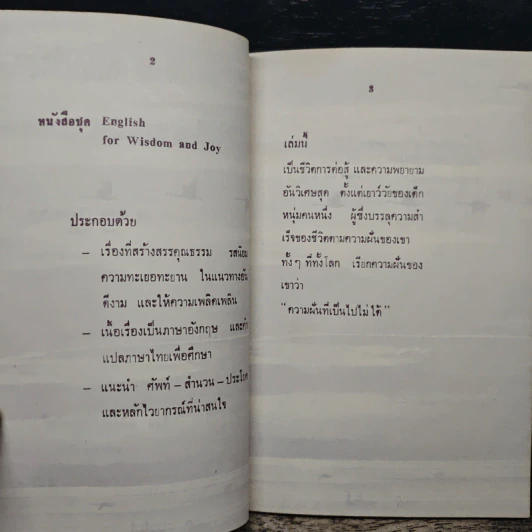 2
หนังสือชุด English
for Wisdom and Joy
ประกอบด้วย
– เรื่องที่สร้างสรรคุณธรรม รสนิยม
ความทะเยอทะยาน ในแนวทางอัน
ดีงาม และให้ความเพลิดเพลิน
– เนื้อเรื่องเป็นภาษาอังกฤษ และคำ
แปลภาษาไทยเพื่อศึกษา
– แนะนำ ศัพท์ – สำนวน – ประโยค
และหลักไวยากรณ์ที่น่าสนใจ
3
เล่มนี้
เป็นชีวิตการต่อสู้ และความพยายาม
อันวิเศษสุด ตั้งแต่เยาว์วัยของเด็ก
หนุ่มคนหนึ่ง ผู้ซึ่งบรรลุความสำ
เร็จของชีวิตตามความฝันของเขา
ทั้งๆ ที่ทั้งโลก เรียกความฝันของ
เขาว่า
"ความฝันที่เป็นไปไม่ได้"